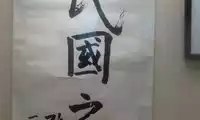 民國之